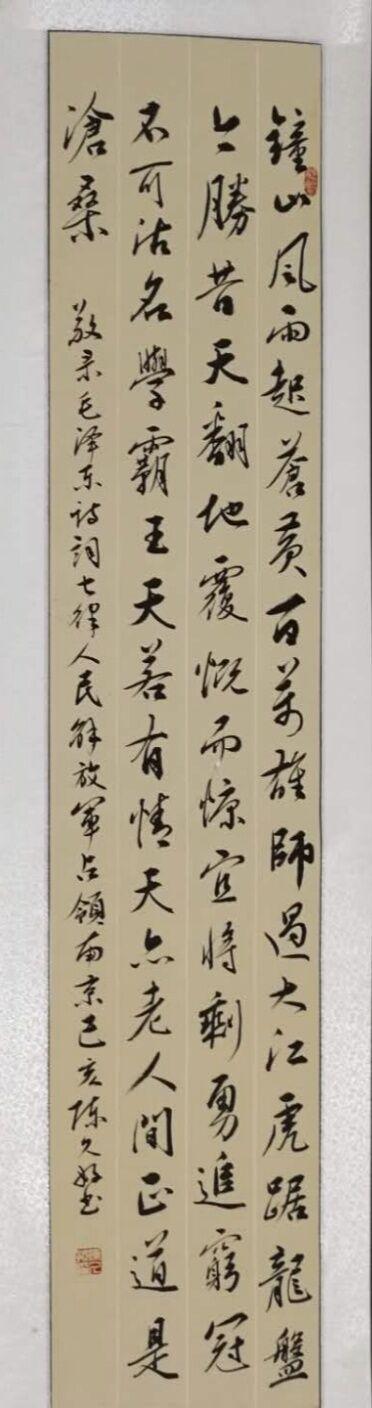 鐘山風雨起蒼黃百萬雄師過大江虎踞龍盤
今勝昔天翻地覆慨而慷宜將剩勇追窮冠
不可沽名學霸王天若有情天亦老人間正道是
滄桑
敬录毛泽东诗词七律人民解放軍占領南京己亥陈久书